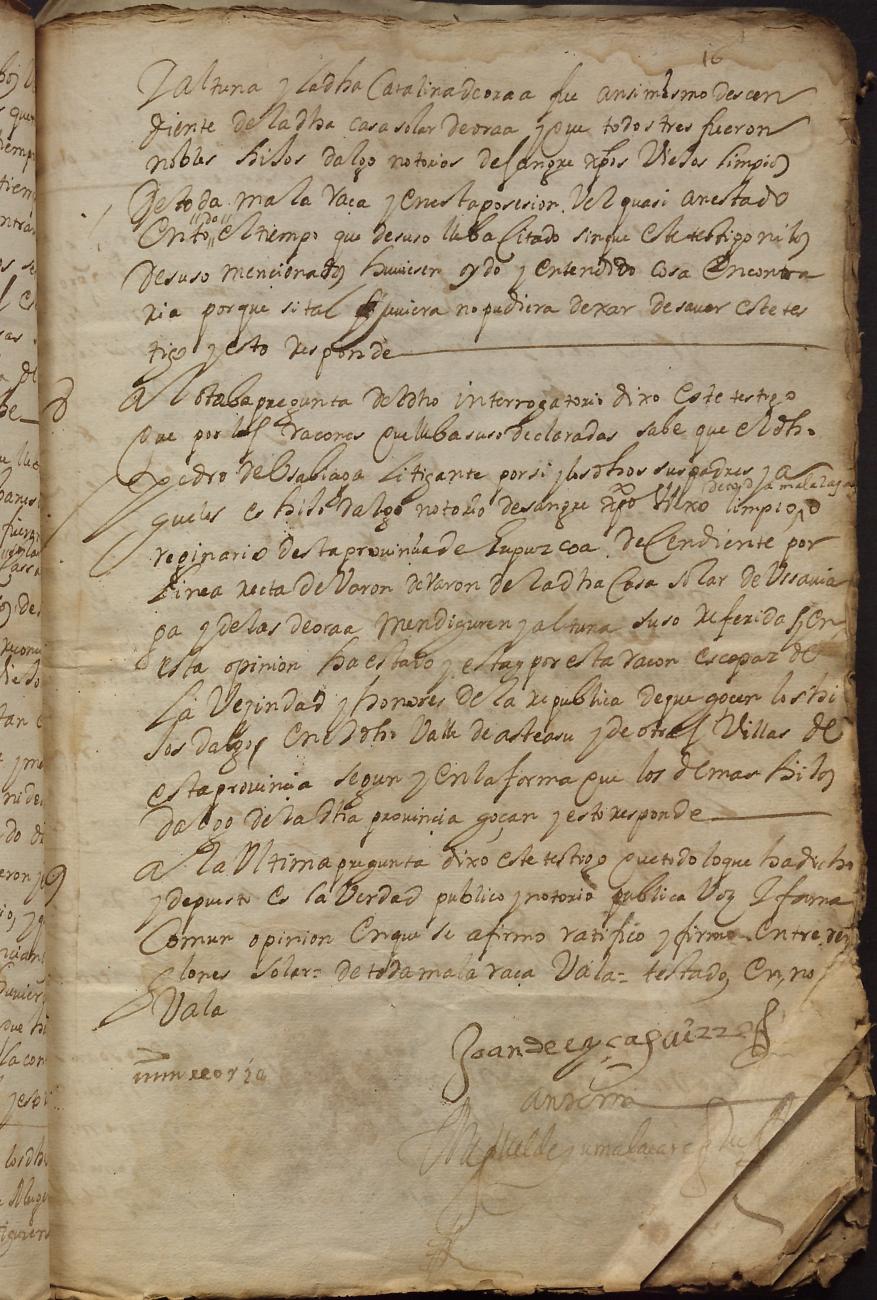 16
Yaltuna y la dha Catalina de oraa fue ansi mesmo descen
diente de la dha casa solar de oraa y que todos tres fueron
nobles hijos dalgo notorios de sangre xpos Viejos limpios
De toda mala raça y en esta posesion Vel quasi an estado
En todo el tiempo que de suso lleba Citado sin que este testigo ni los
De suso mencionados huuiesen oydo y entendido cosa En contra
ria porque si tal huuiera no pudiera dexar de sauer este tes
tigo y esto responde
8
A la otaba pregunta del dho interrogatorio dixo este testigo
que por las raçones que lleba suso declaradas sabe que el dho
Pedro de Usabiaga litigante por si y los dhos sus padres y a
guelos es hijo dalgo notorio de sangre xpo Viexo limpio de toda mala raça
reginario desta prouinçia de Guipuzcoa deCendiente por
linea recta de Varon de Varon de la dha Casa solar de Ussauia
ga y de las de oraa Mendiguren y altuna suso referidas y en
esta opinion ha estado y esta y por esta raçon es capaz de
La Vezindad y honores de la republica de que goçen los hi
jos dalgo En el dho Valle de asteasu y de otras Villas de
esta prouinçia segun y en la forma que los demas hijos
dalgo de la dha prouinçia goçan y esto responde
9
a la Ultima pregunta dixo este testigo que todo lo que ha dicho
y depuesto es la Verdad publico y notorio publica Voz y fama
Comun opinion En que se afirmo ratifico y firmo Entre ren
lones solar= de toda mala raça Vala= testado En, no
Vala
Joan de
ante mi
Miguel de